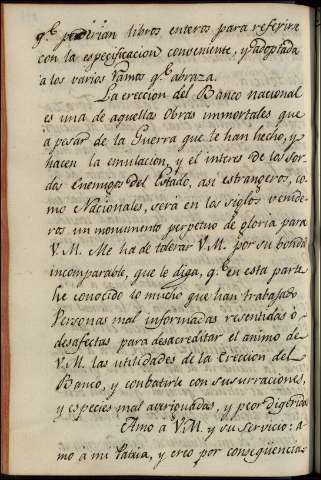 q.e pedirian libros enteros para referirse
con la especificacion conveniente, y adoptada
a los varios ramos q.e abraza.
La ereccion del Banco nacional
es una de aquellas Obras immortales que
a pesar de la Guerra que le han hecho, y
hacen la emulacion, y el interes de los sor-
dos Enemigos del Estado, asi estrangeros, co-
mo Nacionales, será en los siglos venide-
ros un monumento perpetuo de gloria para
V. M. Me ha de tolerar V. M. por su bondad
incomparable, que le diga, q.e en esta parte
he conocido lo mucho que han trabajado
Personas mal informadas resentidas ó
desafectas para desacreditar el animo de
V. M. las utilidades de la Ereccion del
Banco, y combatirle con susurraciones,
y especies mal averiguadas, y peor digeridas
Amo a V. M. y su servicio: a-
mo a mi Patria, y creo por conseqüencias